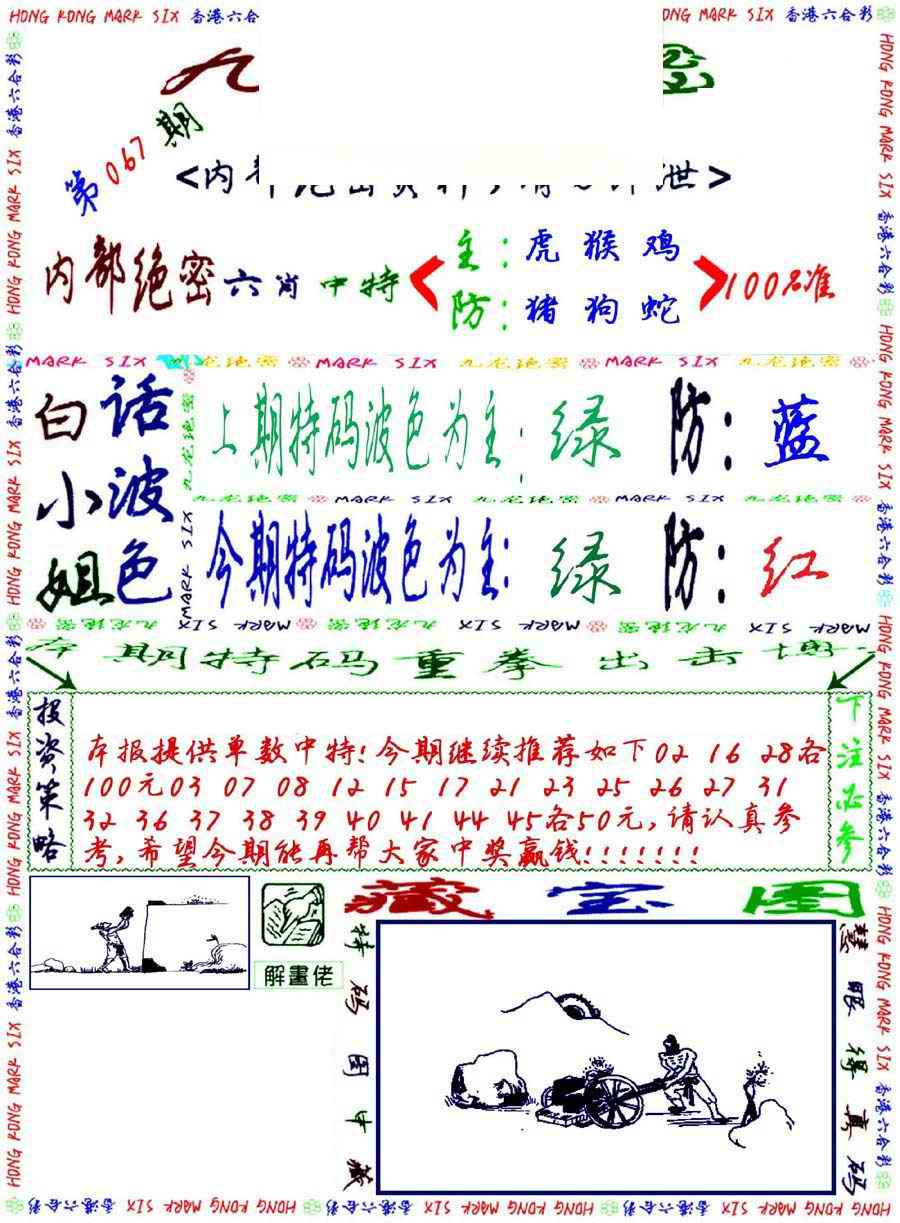 HONG KONG MARK SIX 香港六合彩
九
第067期
<内
泄>
内部绝密六肖中特
主:虎猴鸡
防:猪狗蛇
100%准
MARK SIX 九龙绝密 MARK SIX 九龙绝密 MARK SIX 九龙绝密
白话
小波
姐色
上期特码波色为主:绿 防:蓝
九龙绝密 MARK SIX 九龙绝密 MARK SIX 九龙绝密
今期特码波色为主:绿 防:红
九龙绝密 MARK SIX 九龙绝密 MARK SIX 九龙绝密 MARK SIX
本期特码重拳出击
投资策略
本报提供单数中特!今期继续推荐如下02 16 28各
100元03 07 08 12 15 17 21 23 25 26 27 31
32 36 37 38 39 40 41 44 45各50元,请认真参
考,希望今期能再帮大家中奖赢钱!!!!!!!
下注必参
解畫佬
藏宝图
特码图中藏
慧眼得真码
HONG KONG MARK SIX 香港六合彩